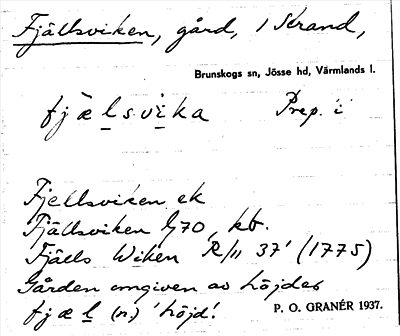 Fjällsviken, gård, i Strand,
Brunskogs sn, Jösse hd, Värmlands l.
fjælsvika Prep. i
Fjellsviken ek
Fjällsviken G70, kb.
Fjälls Wiken R/11 37' (1775)
Gården omgiven av höjder
fjæl (n.) 'höjd'.
P. O. GRANÉR 1937.